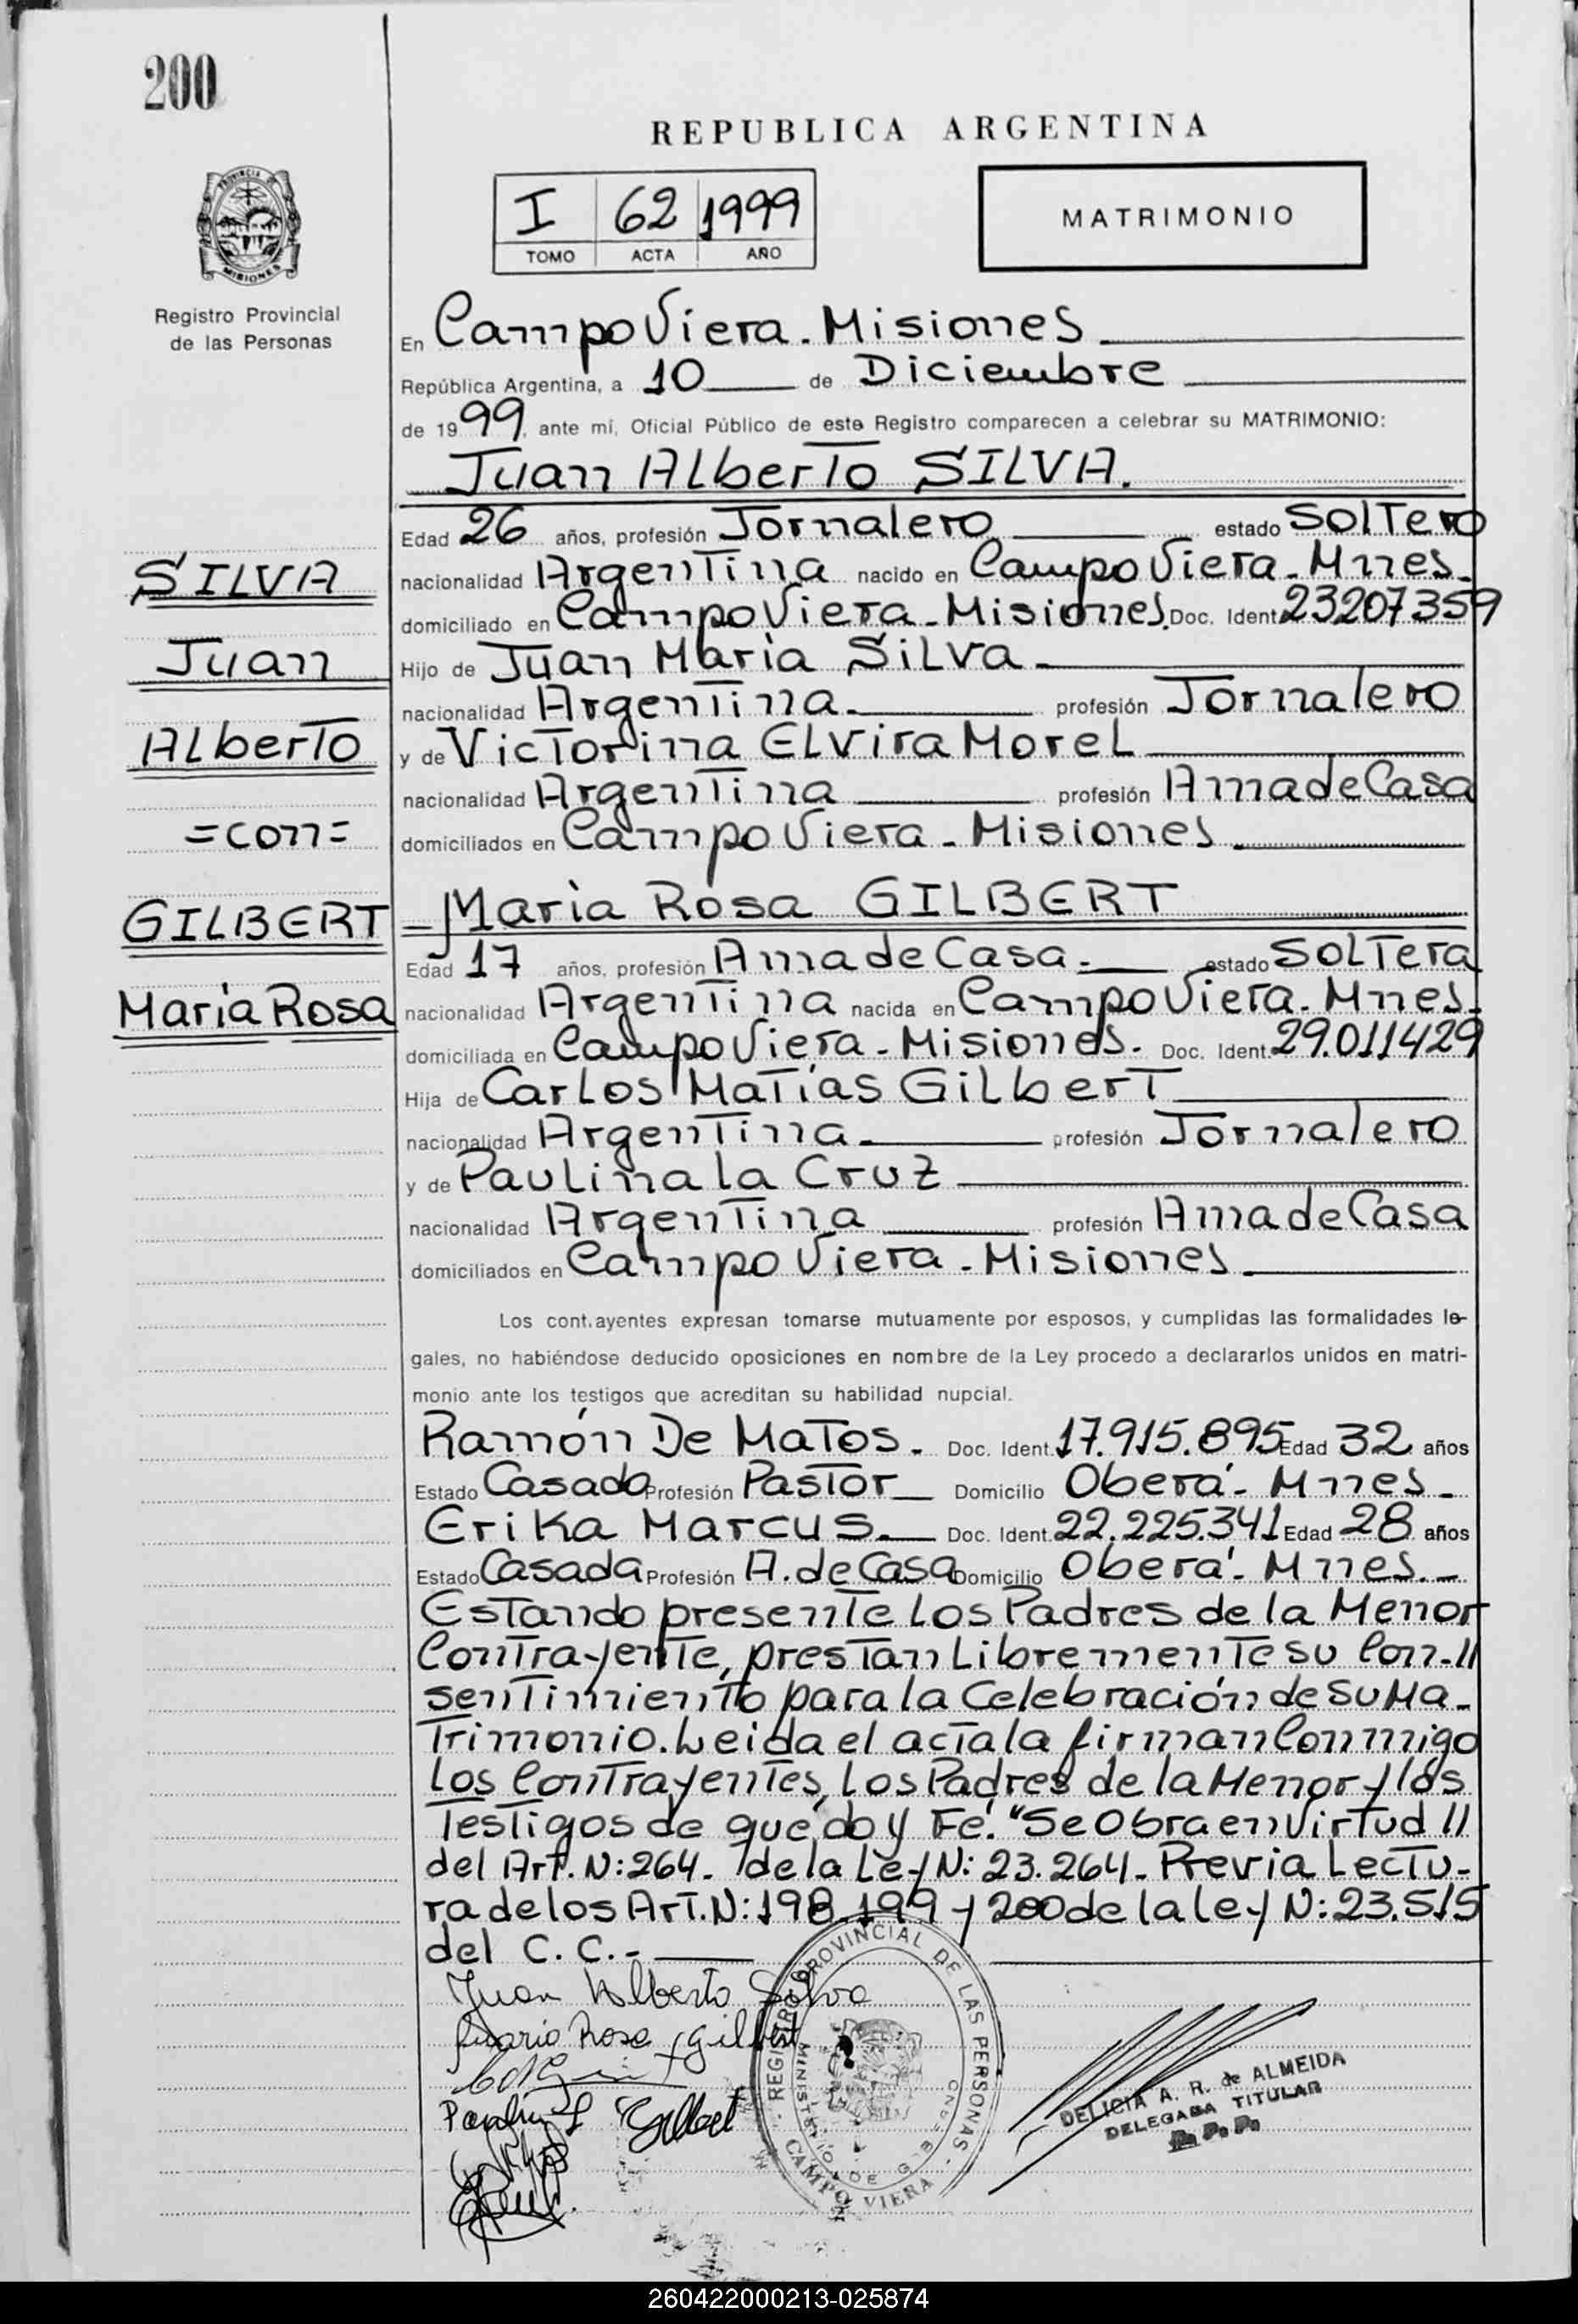 200
REPUBLICA ARGENTINA
PROVINCIA DE
MISIONES
I 62 1999
TOMO ACTA AÑO
MATRIMONIO
Registro Provincial
de las Personas
En Campo Viera - Misiones
República Argentina, a 10 de Diciembre
de 1999, ante mí, Oficial Público de este Registro comparecen a celebrar su MATRIMONIO:
Juan Alberto SILVA.
Edad 26 años, profesión Jornalero estado Soltero
SILVA
nacionalidad Argentina nacido en Campo Viera - Mnes.
domiciliado en Campo Viera - Misiones. Doc. Ident. 23207359
Juan
Hijo de Juan María Silva
nacionalidad Argentina profesión Jornalero
Alberto
y de Victorina Elvira Morel
nacionalidad Argentina profesión Ama de Casa
=con=
domiciliados en Campo Viera - Misiones
GILBERT
María Rosa GILBERT
Edad 17 años, profesión Ama de Casa. estado Soltera
María Rosa
nacionalidad Argentina nacida en Campo Viera - Mnes.
domiciliada en Campo Viera - Misiones. Doc. Ident. 29.011429
Hija de Carlos Matías Gilbert
nacionalidad Argentina profesión Jornalero
y de Paulina la Cruz
nacionalidad Argentina profesión Ama de Casa
domiciliados en Campo Viera - Misiones
Los cont.ayentes expresan tomarse mutuamente por esposos, y cumplidas las formalidades le-
gales, no habiéndose deducido oposiciones en nombre de la Ley procedo a declararlos unidos en matri-
monio ante los testigos que acreditan su habilidad nupcial.
Ramón De Matos. Doc. Ident. 17.915.895 Edad 32 años
Estado Casado Profesión Pastor Domicilio Oberá - Mnes
Erika Marcus. Doc. Ident. 22.225.341 Edad 28 años
Estado Casada Profesión A. de Casa Domicilio Oberá - Mnes.
Estando presente Los Padres de la Menor
Contrayente, prestan Libremente su Con-//
sentimiento para la Celebración de su Ma-
trimonio. Leida el acta la firman Conmigo
los Contrayentes, Los Padres de la Menor y los
Testigos de que doy Fé. "Se Obra en Virtud //
del Art. N: 264. de la Ley N: 23.264 - Previa Lectu-
ra de los Art. N: 198, 199 y 200 de la ley N: 23.515
del C. C.-
Juan Alberto Silva
Maria Rosa Gilbert
Gilbert
REGISTRO PROVINCIAL DE LAS PERSONAS
MINISTERIO DE
CAMPO VIERA
DELICIA A. R. de ALMEIDA
DELEGADA TITULAR
R. P. P.
260422000213-025874